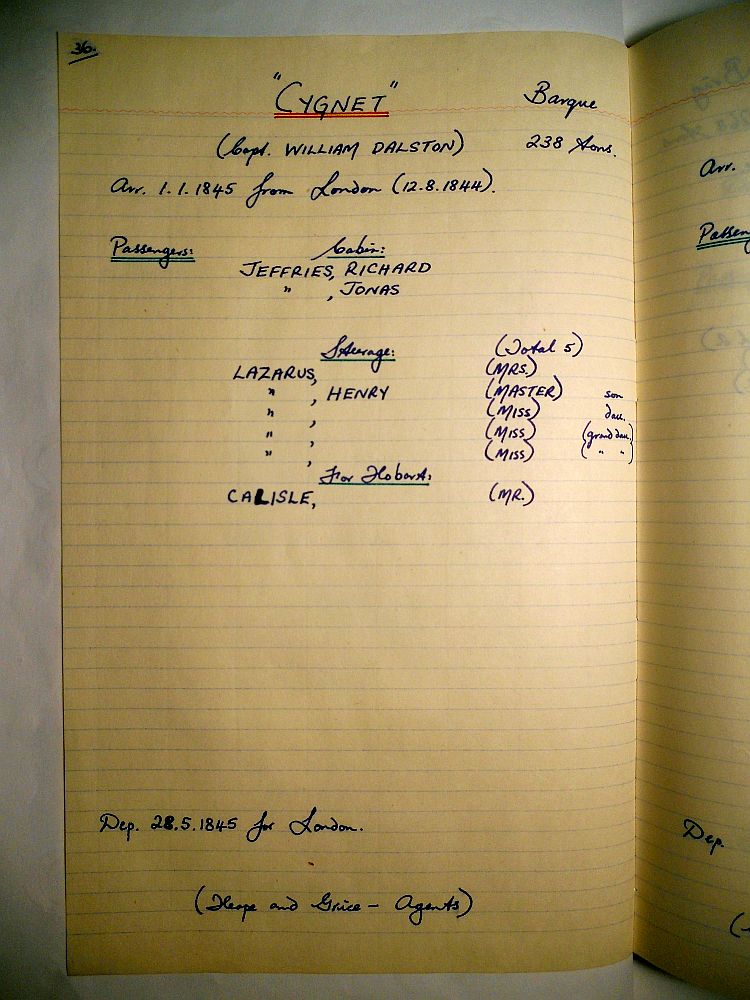 36.
"CYGNET" Barque
(Capt. WILLIAM DALSTON) 238 tons.
Arr. 1.1.1845 from London (12.8.1844).
Passengers: Cabin:
JEFFRIES, RICHARD
" , JONAS
Steerage: (Total 5)
LAZARUS, (MRS.)
" , HENRY (MASTER) son
" , (MISS) dau.
" , (MISS) (grand dau.)
" , (MISS) ( " " )
For Hobart:
CALISLE, (MR.)
Dep. 28.5.1845 for London.
(Heape and Grice – Agents)
Arr.
Passen
Dep.